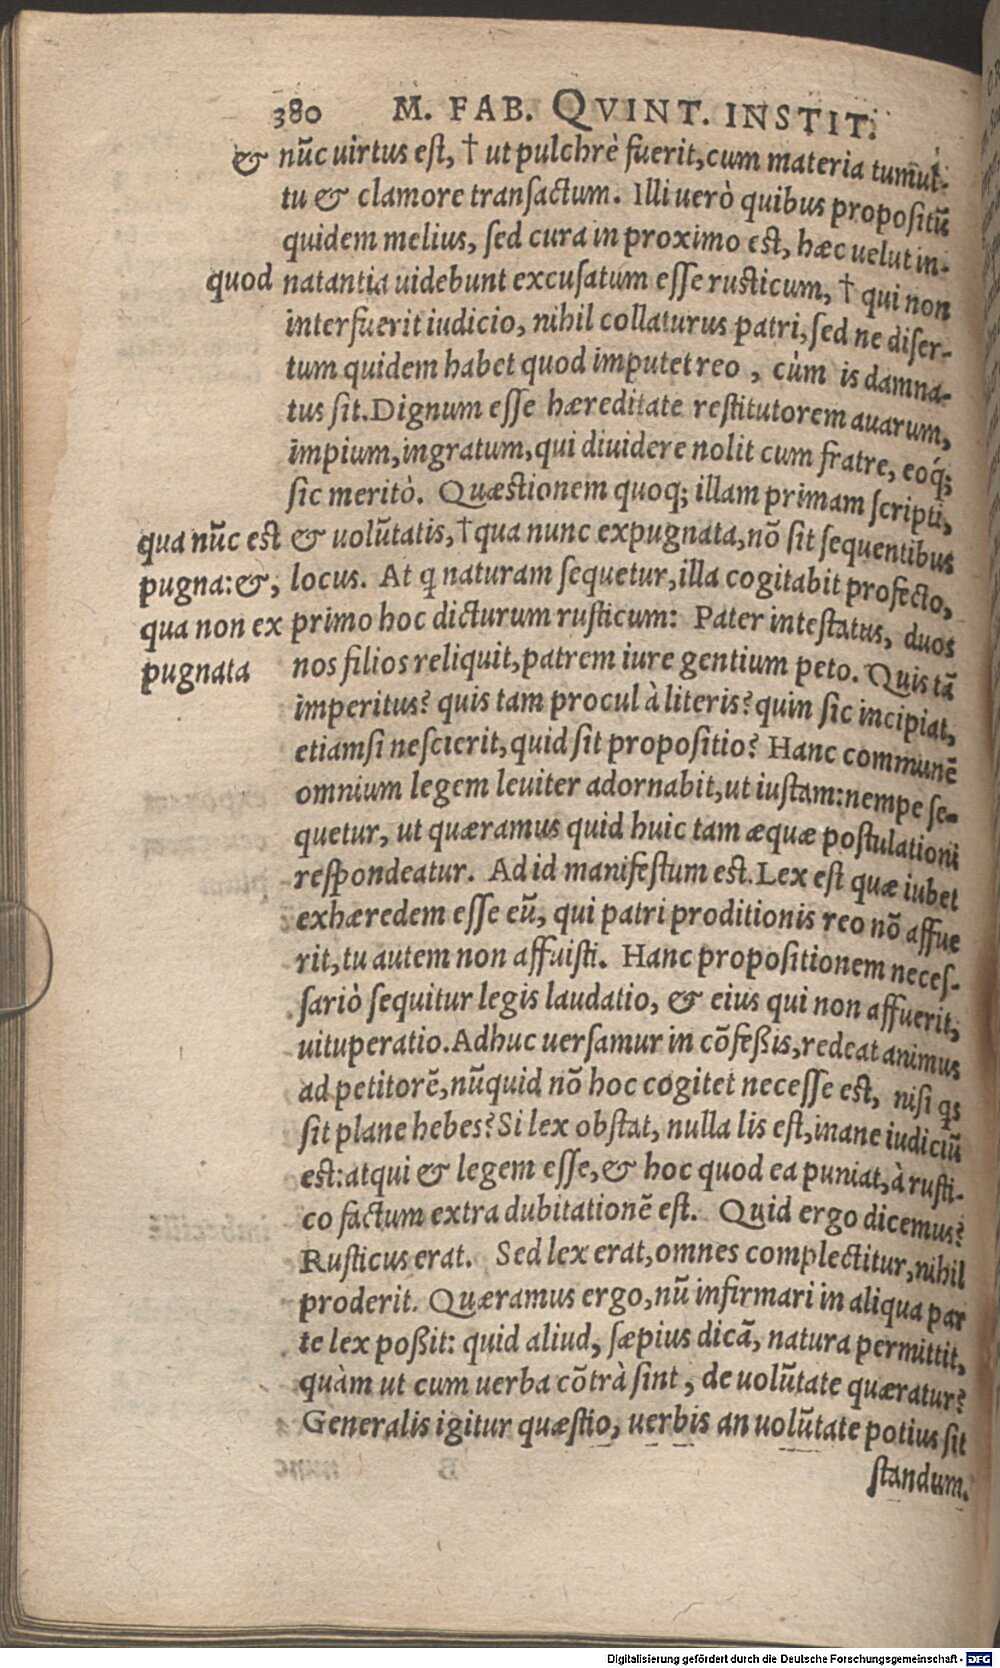 380 M. FAB. QVINT. INSTIT.
& nūc uirtus est, † ut pulchrè fuerit, cum materia tumul-
tu & clamore transactum. Illi uerò quibus propositū
quidem melius, sed cura in proximo est, hæc uelut in-
quod natantia uidebunt excusatum esse rusticum, † qui non
interfuerit iudicio, nihil collaturus patri, sed ne diser-
tum quidem habet quod imputet reo, cùm is damna-
tus sit. Dignum esse hæreditate restitutorem auarum,
impium, ingratum, qui diuidere nolit cum fratre, eóq;
sic meritò. Quæstionem quoq; illam primam scripti,
qua nūc est & uolūtatis, † qua nunc expugnata, nō sit sequentibus
pugna: &, locus. At q naturam sequetur, illa cogitabit profecto,
qua non ex primo hoc dicturum rusticum: Pater intestatus, duos
pugnata nos filios reliquit, patrem iure gentium peto. Quis tā
imperitus? quis tam procul à literis? quin sic incipiat,
etiamsi nescierit, quid sit propositio? Hanc communē
omnium legem leuiter adornabit, ut iustam: nempe se-
quetur, ut quæramus quid huic tam æquæ postulationi
respondeatur. Ad id manifestum est. Lex est quæ iubet
exhæredem esse eū, qui patri proditionis reo nō affue
rit, tu autem non affuisti. Hanc propositionem neces-
sariò sequitur legis laudatio, & eius qui non affuerit,
uituperatio. Adhuc uersamur in cōfeßis, redeat animus
ad petitorē, nūquid nō hoc cogitet necesse est, nisi qs
sit plane hebes? Si lex obstat, nulla lis est, inane iudiciū
est: atqui & legem esse, & hoc quod ea puniat, à rusti-
co factum extra dubitationē est. Quid ergo dicemus?
Rusticus erat. Sed lex erat, omnes complectitur, nihil
proderit. Quæramus ergo, nū infirmari in aliqua par
te lex poßit: quid aliud, sæpius dicā, natura permittit,
quàm ut cum uerba cōtrà sint, de uolūtate quæratur?
Generalis igitur quæstio, uerbis an uolūtate potius sit
standum.
Digitalisierung gefördert durch die Deutsche Forschungsgemeinschaft - DFG